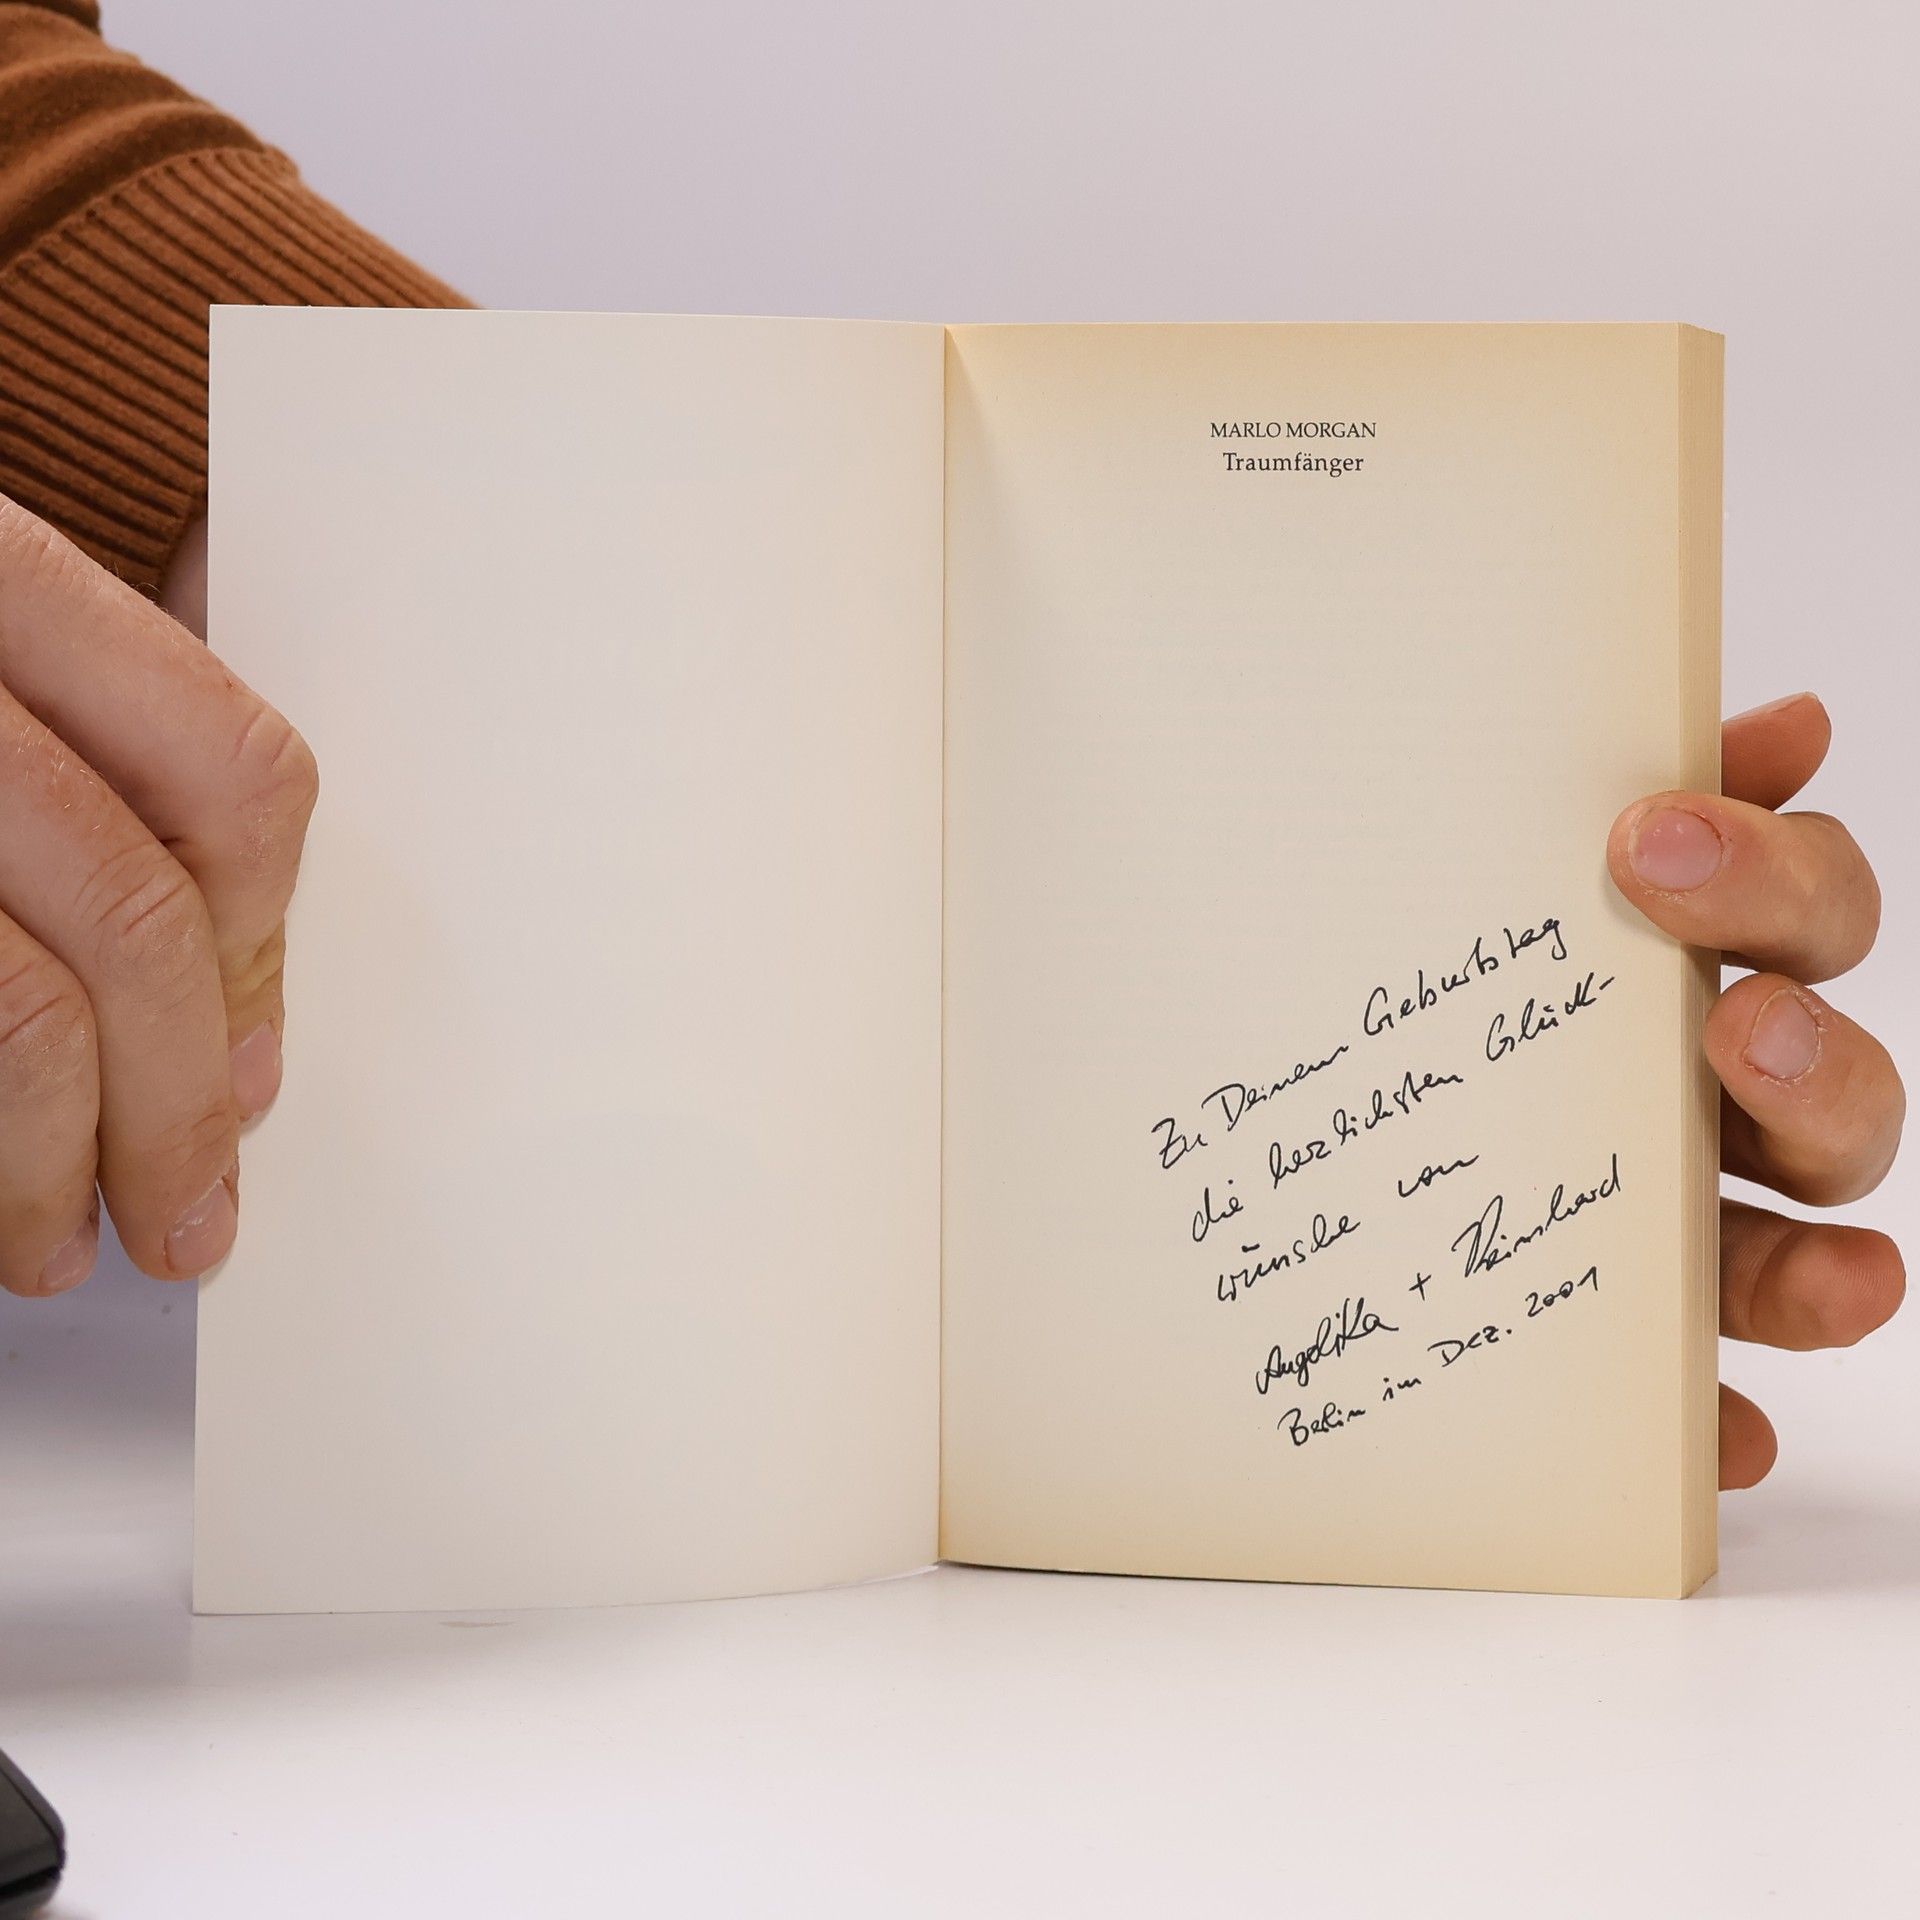 MARLO MORGAN
Traumfänger
Zu Deinem Geburtstag
die herzlichsten Glück-
wünsche von
Angelika + Reinhard
Berlin im Dez. 2001